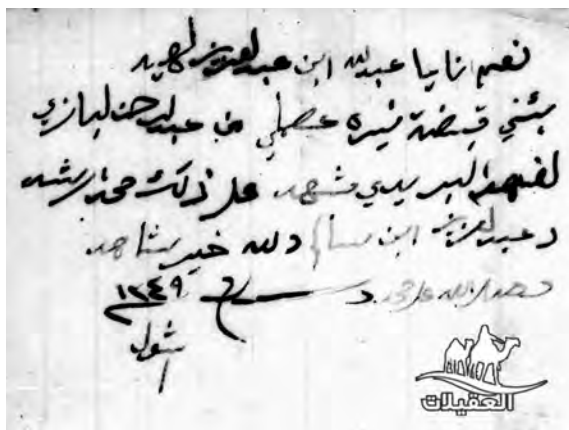 نعم انا يا عبدالله ابن عبدالعزيز
بأني قبضة نيره عصملي من عبدالرحمن البازي
لفهد البريدي وشهد على ذلك محمد الرشيد
وعبدالعزيز ابن سالم والله خير شاهد
وصلى الله على محمد
١٣٤٩
شوال
العقيلات